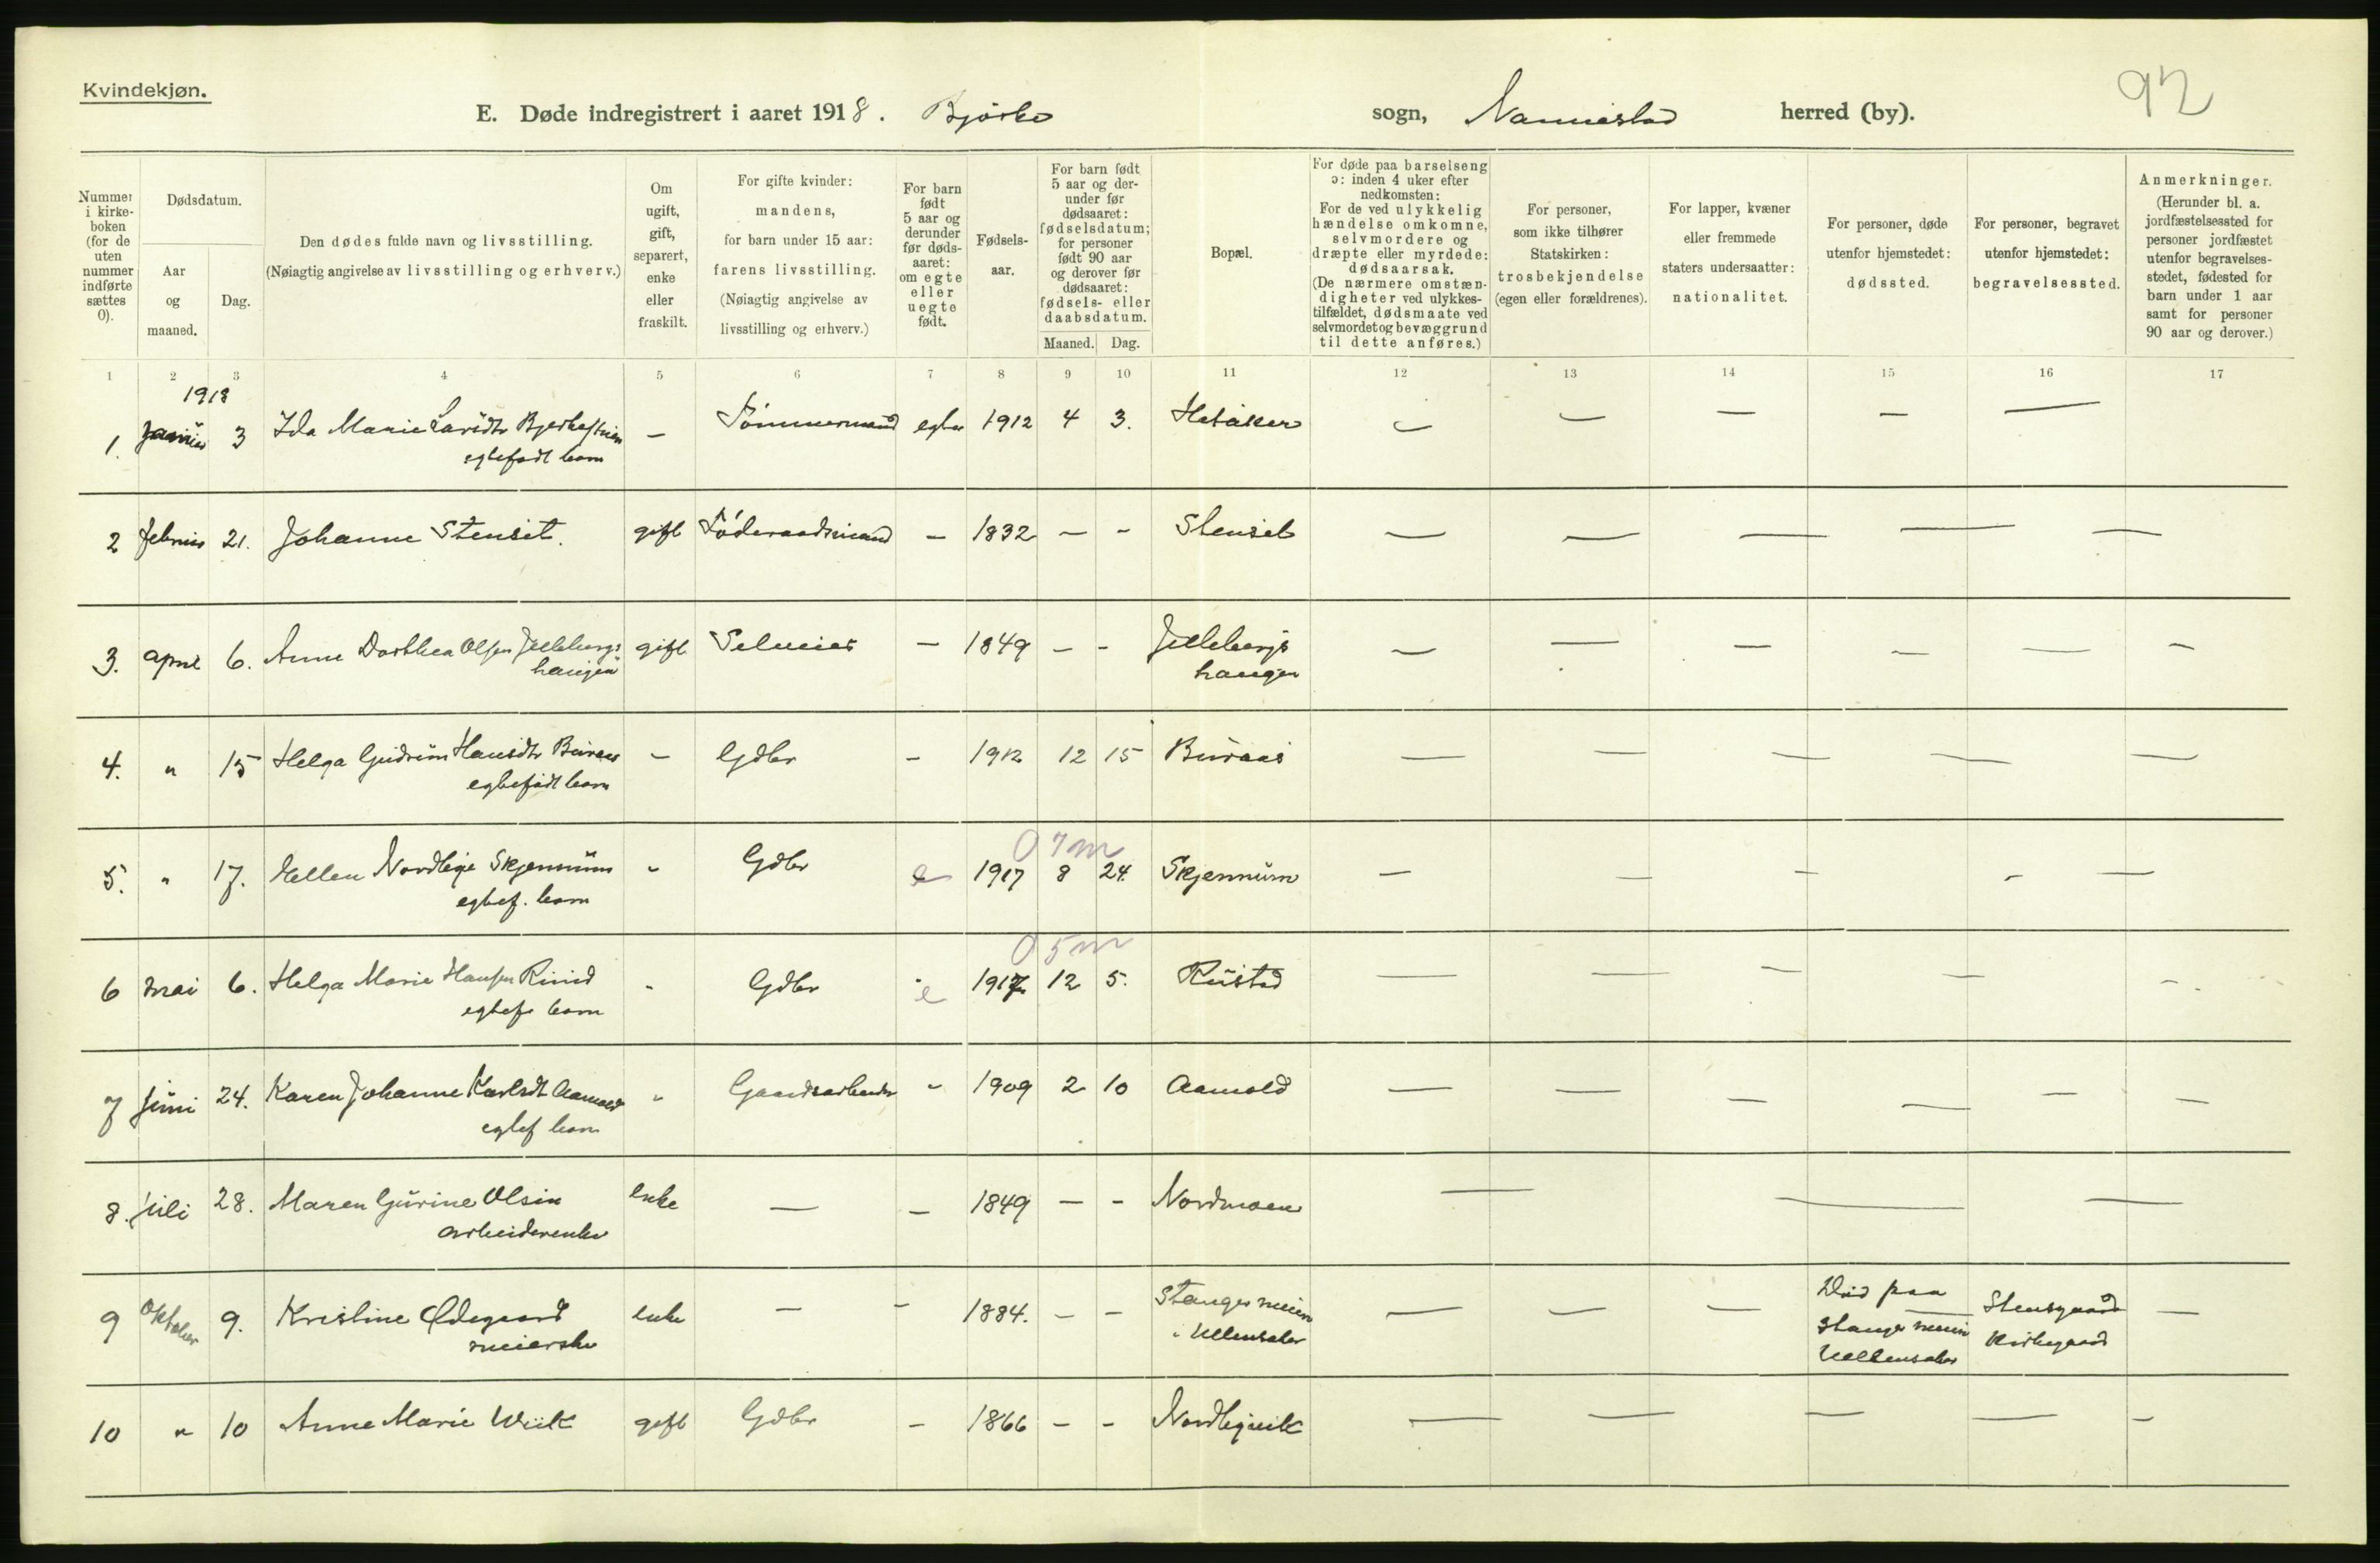 Kvindekjøn.
92
E. Døde indregistrert i aaret 1918. Bjørke sogn, Nannestad herred (by).
Nummer i kirke-boken (for de uten nummer indførte sættes 0).
Dødsdatum.
Aar og maaned.
Dag.
Den dødes fulde navn og livsstilling.
(Nøiagtig angivelse av livsstilling og erhverv.)
Om ugift, gift, separert, enke eller fraskilt.
For gifte kvinder: mandens, for barn under 15 aar: farens livsstilling.
(Nøiagtig angivelse av livsstilling og erhverv.)
For barn født 5 aar og derunder før døds-aaret: om egte eller uegte født.
Fødsels-aar.
For barn født 5 aar og der-under før dødsaaret: fødselsdatum; for personer født 90 aar og derover før dødsaaret: fødsels- eller daabsdatum.
Maaned. Dag.
Bopæl.
For døde paa barselseng ɔ: inden 4 uker efter nedkomsten: For de ved ulykkelig hændelse omkomne, selvmordere og dræpte eller myrdede: dødsaarsak.
(De nærmere omstæn-digheter ved ulykkes-tilfældet, dødsmaate ved selvmordet og bevæggrund til dette anføres.)
For personer, som ikke tilhører Statskirken: trosbekjendelse (egen eller forældrenes).
For lapper, kvæner eller fremmede staters undersaatter: nationalitet.
For personer, døde utenfor hjemstedet: dødssted.
For personer, begravet utenfor hjemstedet: begravelsessted.
Anmerkninger.
(Herunder bl. a. jordfæstelsessted for personer jordfæstet utenfor begravelses-stedet, fødested for barn under 1 aar samt for personer 90 aar og derover.)
1 2 3 4 5 6 7 8 9 10 11 12 13 14 15 16 17
1918
1. januar 3 Ida Marie — Tømmermand egte 1912 4 3. — — — —
egtefødt barn
2 februar 21. Johanne Stenset. gift Føderaadsmand — 1832 — - Stenset — — — — —
3. april 6. Anne Dorthea Olsen gift Selveier — 1849 — - — — — — — —
haugen haugen
4. " 15 Helga Gudrun Hansdtr Buraas — Gdbr - 1912 12 15 Buraas — — — — —
egtefødt barn
0 7 m
5. " 17. Hellen Nordlige Skjennum - Gdbr e 1917 8 24. Skjennum — — — - —
egtef. barn
0 5 m
6 mai 6. Helga Marie Hansen - Gdbr e 1917 12 5. Rustad — — — — -
egtef barn
7 juni 24. Karen Johanne Karlsdt Aamold " Gaardsarbeider - 1909 2 10 Aamold — — — — — —
egtef barn
8. juli 28. Maren Gurine Olsen enke — — 1849 — - Nordmoen — — —
arbeiderenke
9 Oktober 9. Kristine Ødegaard enke — - 1884. — — Stanges meieri — — — Død paa Stensgaard —
meierske i Ullensaker Stanges meieri Kirkegaard
Ullensaker
10 " 10 Anne Marie Wiik gift Gdbr - 1866 — - Nordbywik — — — — -